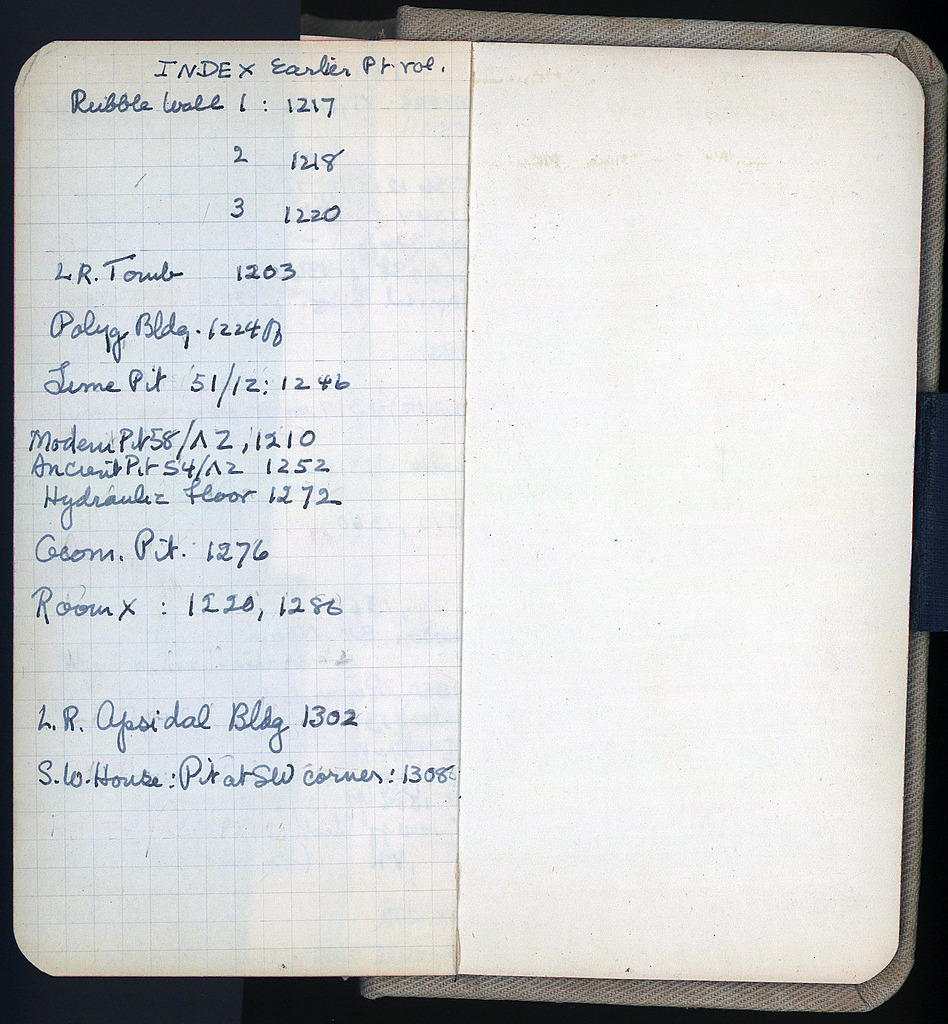 INDEX Earlier Pt vol.
Rubble Wall 1 : 1217
2 1218
3 1220
L.R. Tomb 1203
Polyg Bldg. 1224
Lime Pit 51/12: 1246
Modern Pit 58/Λ2, 1210
Ancient Pit 54/Λ2 1252
Hydraulic floor 1272
Geom. Pit. 1276
Room X : 1220, 1286
L.R. Apsidal Bldg 1302
S.W. House: Pit at SW corner: 1308